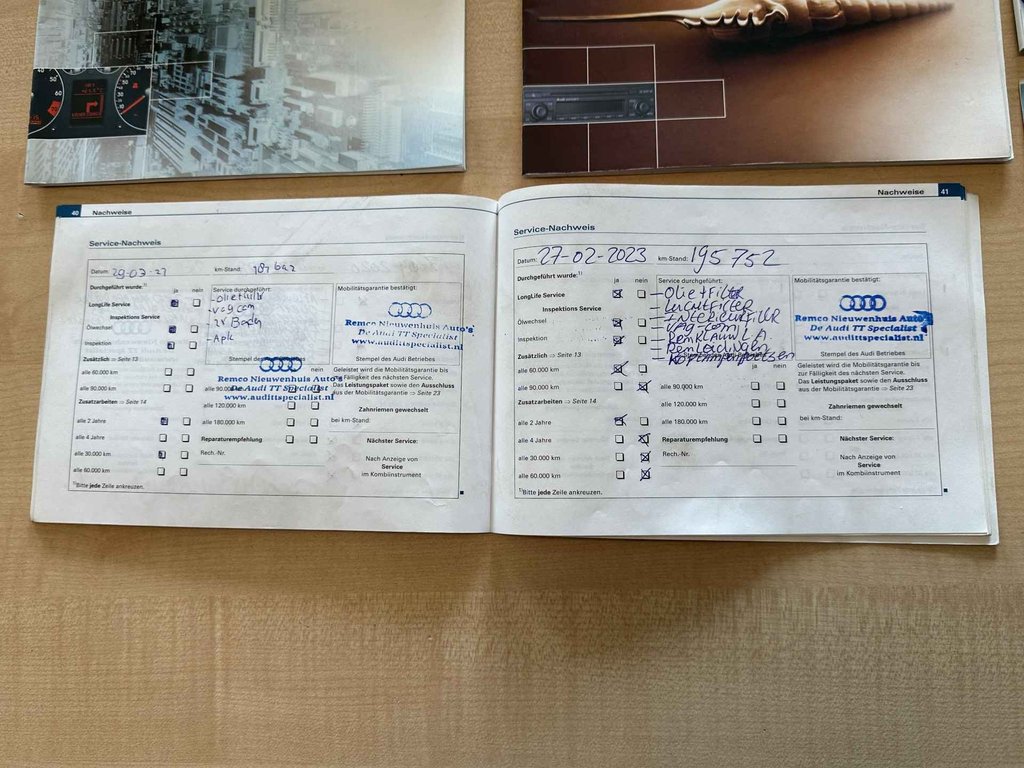 40 Nachweise
Service-Nachweis
Datum: km-Stand:
Durchgeführt wurde:1) ja nein
Service durchgeführt:
Mobilitätsgarantie bestätigt:
LongLife Service
- oliefilter
Inspektions Service
- vag com
Ölwechsel
Inspektion
- APK
Remco Nieuwenhuis Auto's
De Audi TT Specialist
www.audittspecialist.nl
Stempel des Audi Betriebes
Zusätzlich ⇒ Seite 13
Stempel
nein
Remco Nieuwenhuis Auto's
De Audi TT Specialist
www.audittspecialist.nl
alle 60.000 km
alle 90.000 km
alle 90.000 km
Geleistet wird die Mobilitätsgarantie bis
zur Fälligkeit des nächsten Service.
Das Leistungspaket sowie den Ausschluss
aus der Mobilitätsgarantie ⇒ Seite 23
Zusatzarbeiten ⇒ Seite 14
alle 120.000 km
Zahnriemen gewechselt
alle 2 Jahre
alle 180.000 km
bei km-Stand:
alle 4 Jahre
Reparaturempfehlung
Nächster Service:
alle 30.000 km
Rech.-Nr.
Nach Anzeige von
Service
im Kombiinstrument
alle 60.000 km
1)Bitte jede Zeile ankreuzen.
Nachweise 41
Service-Nachweis
Datum: 27-02-2023 km-Stand: 195752
Durchgeführt wurde:1) ja nein
Service durchgeführt:
Mobilitätsgarantie bestätigt:
LongLife Service
- OlietFilter
- Luchtfilter
Inspektions Service
- Interieurfilter
Ölwechsel
- Vag-com
Inspektion
- Remklauw L.A.
- Remleidingen
Remco Nieuwenhuis Auto's
De Audi TT Specialist
www.audittspecialist.nl
Stempel des Audi Betriebes
Zusätzlich ⇒ Seite 13
ja nein
alle 60.000 km
alle 90.000 km
alle 90.000 km
Geleistet wird die Mobilitätsgarantie bis
zur Fälligkeit des nächsten Service.
Das Leistungspaket sowie den Ausschluss
aus der Mobilitätsgarantie ⇒ Seite 23
Zusatzarbeiten ⇒ Seite 14
alle 120.000 km
Zahnriemen gewechselt
alle 2 Jahre
alle 180.000 km
bei km-Stand:
alle 4 Jahre
Reparaturempfehlung
Nächster Service:
alle 30.000 km
Rech.-Nr.
Nach Anzeige von
Service
im Kombiinstrument
alle 60.000 km
1)Bitte jede Zeile ankreuzen.